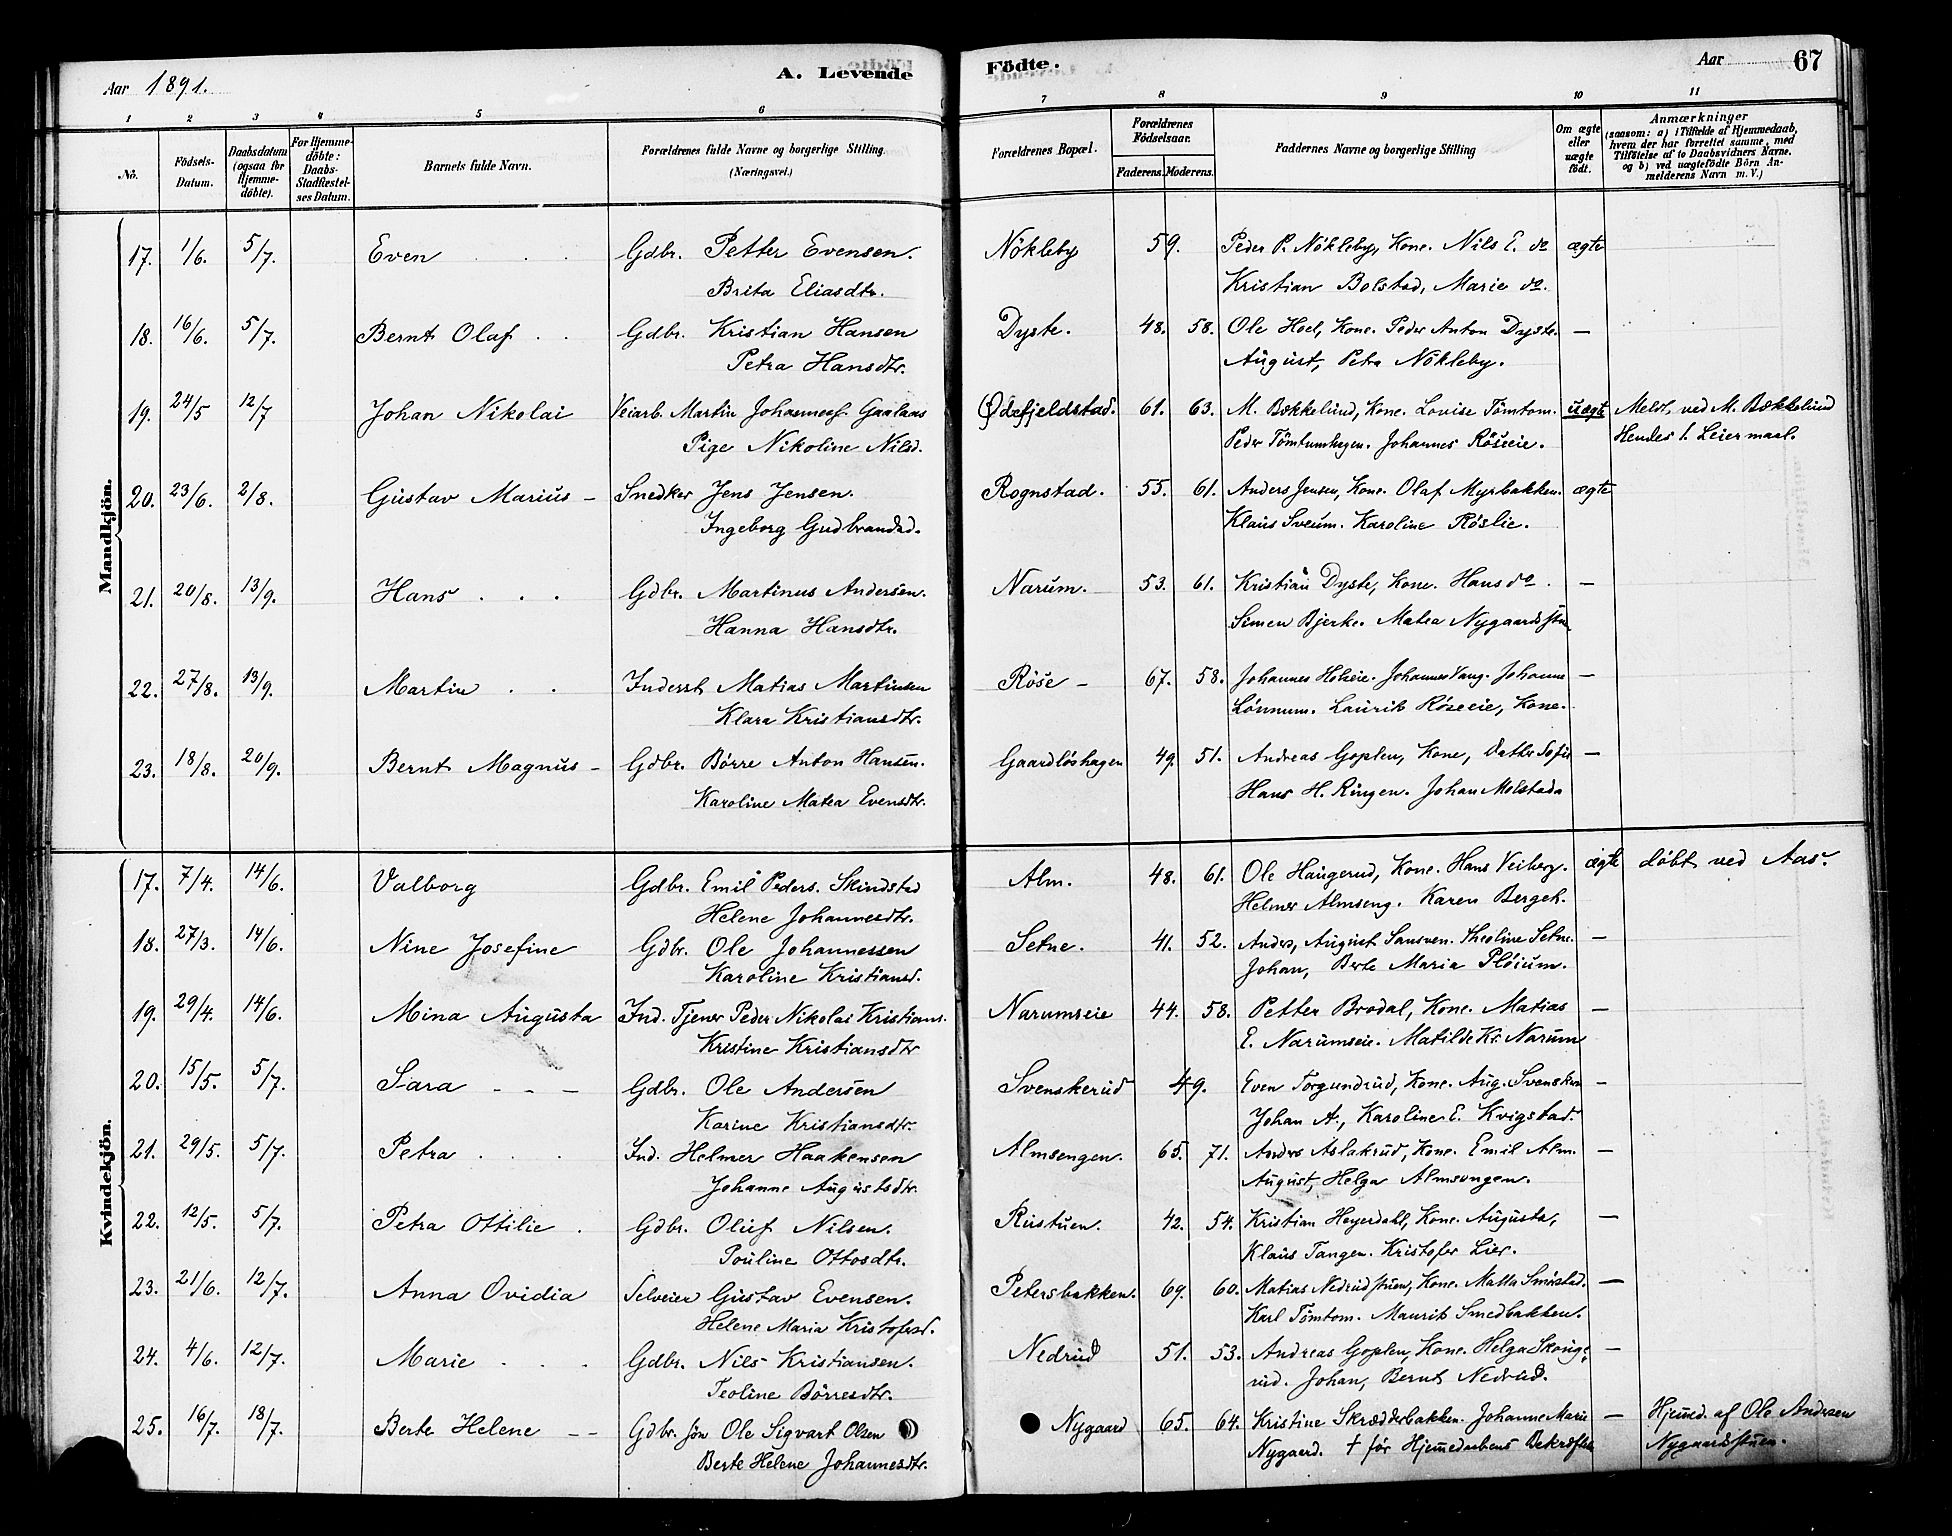 Aar 1891.
A. Levende
Födte.
Aar
67
1 2 3 4 5 6 7 8 9 10 11
Nö.
Födsels-Datum.
Daabsdatum (ogsaa for Hjemme-döbte).
For Hjemme-döbte: Daabs-Stadfæstel-ses Datum.
Barnets fulde Navn.
Forældrenes fulde Navne og borgerlige Stilling. (Næringsvei.)
Forældrenes Bopæl.
Forældrenes Födselsaar.
Faderens. Moderens.
Faddernes Navne og borgerlige Stilling
Om ægte eller uægte födt.
Anmærkninger
(saasom: a) i Tilfælde af Hjemmedaab, hvem der har forrettet samme, med Tilföielse af to Daabsvidners Navne. og b) ved uægtefödte Börn An-melderens Navn m. V.)
Mandkjön.
17. 1/6. 5/7. Even Gdbr. Petter Evensen. Nökleby 59. Peder P. Nökleby, Kone. Nils E. do ægte
Brita Eliasdtr. Kristian Bolstad, Marie do.
18. 16/6. 5/7. Bernt Olaf Gdbr. Kristian Hansen Dyste. 48. 58. Ole Hoel, Kone. Peder Anton Dyste. —
Petra Hansdtr. August, Petra Nökleby.
19. 24/5 12/7 Johan Nikolai Veiarb. Martin Johannesf. Gaalaas Ødefjeldstad. 61. 63. M. Bækkelund, Kone. Lovise Tömtom. uægte Meldt ved M. Bækkelund
Pige Nikoline Nilsd. Peder Tömtumhagen. Johannes Röseeie. Hendes 1. Leiermaal.
20. 23/6. 2/8. Gustav Marius — Snedker Jens Jensen. Rognstad. 55. 61. Anders Jensen, Kone. Olaf Myrbakken. ægte
Ingeborg Gudbrandsd. Klaus Sveum. Karoline Röslie.
21. 20/8. 13/9. Hans Gdbr. Martinus Andersen. Narum. 53. 61. Kristian Dyste, Kone. Hans do. —
Hanna Hansdtr. Simen Bjerke. Matea Nygaardsstuen
22. 27/8. 13/9. Martin Inderst Matias Martinsen Röse — 67. 58. Johannes Holseie. Johannes Vang. Johanne —
Klara Kristiansdtr. Lönnum. Laurits Röseeie, Kone.
23. 18/8. 20/9. Bernt Magnus — Gdbr. Börre Anton Hansen. Gaardlöshagen 49. 51. Andreas Goplen, Kone, Datter Sofie —
Karoline Matea Evensdtr. Hans H. Ringen. Johan Molstada
Kvindekjön.
17. 7/4. 14/6. Valborg Gdbr. Emil Peders. Skindstad Alm. 48. 61. Ole Haugerud, Kone. Hans Veiberg. ægte döbt ved Aas.
Helene Johannesdtr. Helmer Almseng. Karen Bergeh.
18. 27/3. 14/6. Nine Josefine Gdbr. Ole Johannessen Setne. 41. 52. Anders, August Sansven. Theoline Setne. —
Karoline Kristiansd. Johan, Berte Maria Plöium.
19. 29/4. 14/6. Mina Augusta Ind. Tjener Peder Nikolai Kristians. Narumseie 44. 58. Petter Brodal, Kone. Matias —
Kristine Kristiansdtr E. Narumseie. Matilde Kr. Narum
20. 15/5. 5/7. Sara Gdbr. Ole Andersen Svenskerud 49. Even Torgundrud, Kone. Aug. Svensker. —
Karine Kristiansdtr. Johan A., Karoline E. Kvigstad.
21. 29/5. 5/7. Petra Ind. Helmer Haakensen Almsengen. 65. 71. Anders Aslakrud, Kone. Emil Alm. —
Johanne Augustsdtr. August, Helga Almsengen.
22. 12/5. 5/7. Petra Ottilie Gdbr. Oluf Nilsen. Rustuen. 42. 54. Kristian Heyerdahl, Kone. Augusta, —
Pouline Ottosdtr. Klaus Tangen. Kristofer Lier.
23. 21/6. 12/7. Anna Ovidia Selveier Gustav Evensen. Petersbakken. 69. 60. Matias Nedrudstuen, Kone. Matta Smöslad. —
Helene Maria Kristofersd. Karl Tömtom. Maurits Smedbakken.
24. 4/6. 12/7. Marie Gdbr. Nils Kristiansen. Nedrud 51. 53. Andreas Goplen, Kone. Helga Skouge —
Teoline Börresdtr. rud. Johan, Bernt Nedrud.
25. 16/7. 18/7. Berte Helene Gdbr. sön Ole Sigvart Olsen Nygaard 65. 64. Kristine Skrædderbakken. Johanne Marie — Hjemmed. af Ole Andersen
Berte Helene Johannesdtr. Nygaard. † för Hjemmedaabens Bekræftelse Nygaardsstuen.